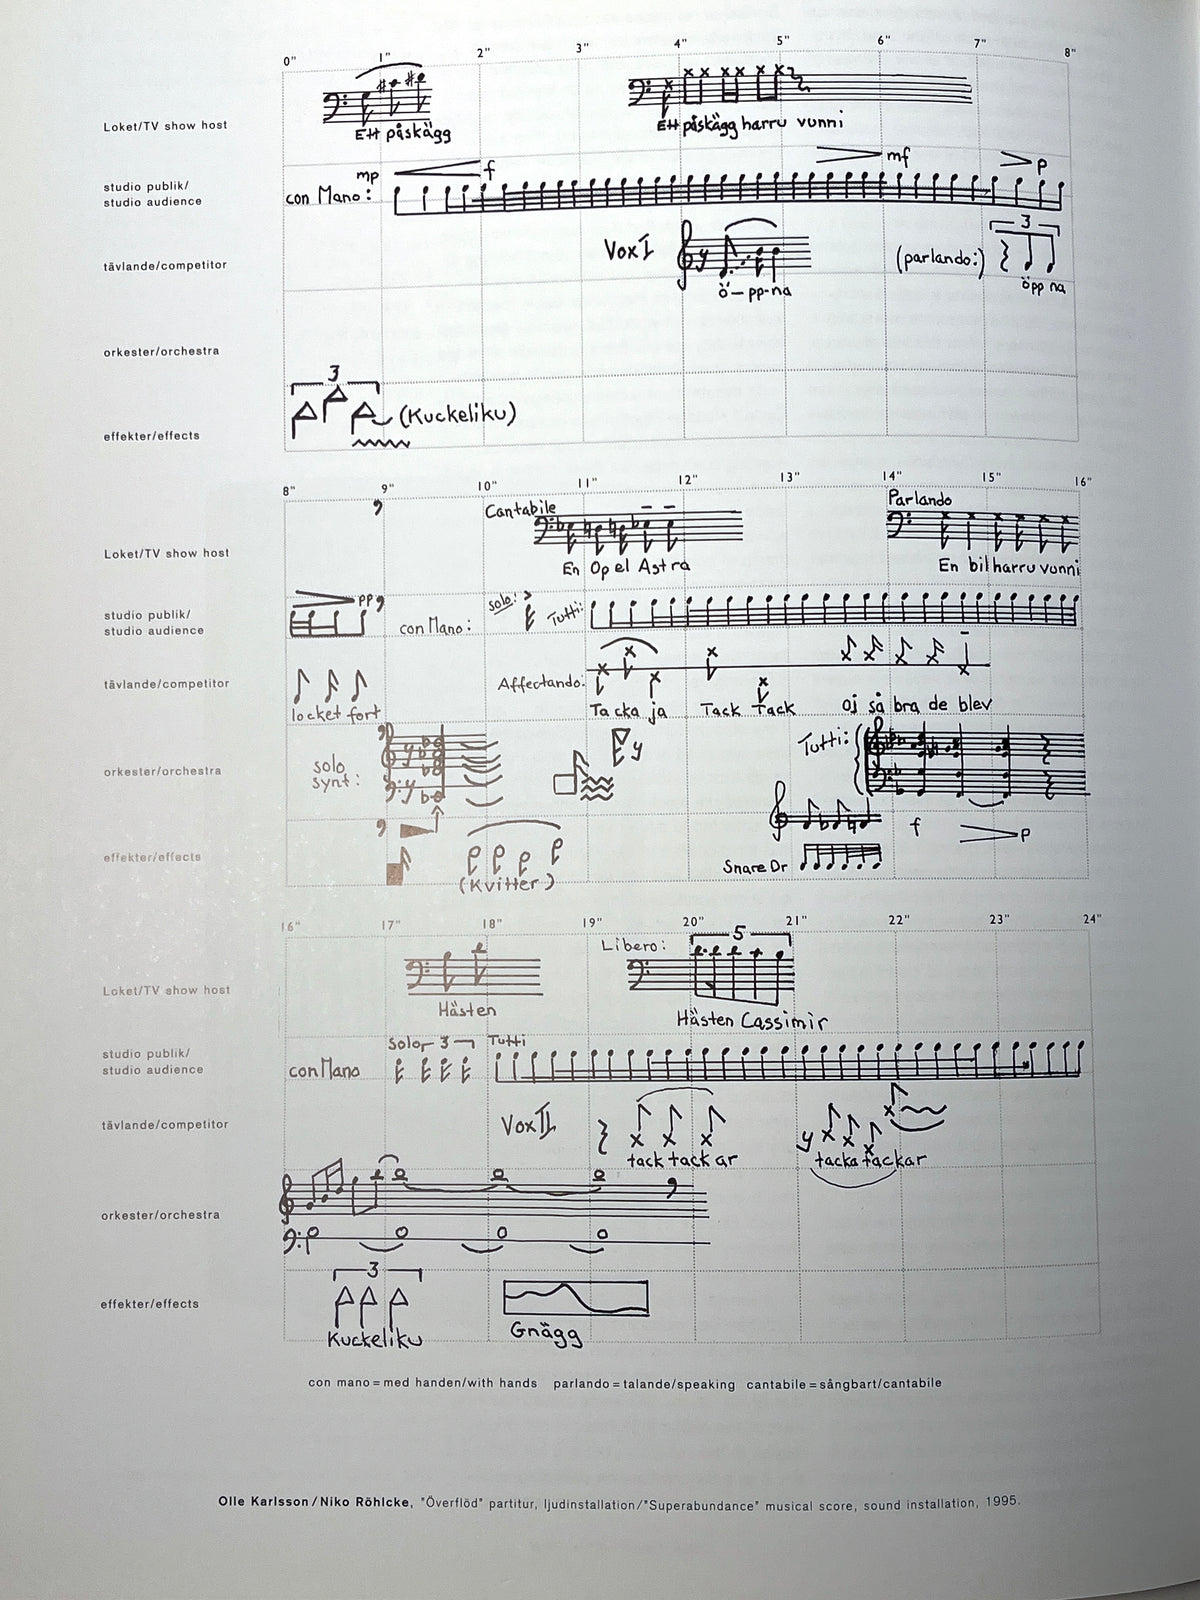 0" 1" 2" 3" 4" 5" 6" 7" 8"
Loket/TV show host
Ett påskägg
Ett påskägg harru vunni
mp f mf p
studio publik/
studio audience
con Mano:
tävlande/competitor
Vox I
ö'-pp-na
(parlando:)
3
öpp na
orkester/orchestra
3
(Kuckeliku)
effekter/effects
8" 9" 10" 11" 12" 13" 14" 15" 16"
Cantabile
Parlando
Loket/TV show host
En Opel Astra
En bil harru vunni
pp
studio publik/
studio audience
con Mano:
solo:
Tutti:
tävlande/competitor
locket fort
Affectando:
Tacka ja
Tack Tack
oj så bra de blev
orkester/orchestra
solo
synt:
Tutti:
f p
effekter/effects
(Kvitter)
Snare Dr
16" 17" 18" 19" 20" 21" 22" 23" 24"
Libero:
5
Loket/TV show host
Hästen
Hästen Cassimir
studio publik/
studio audience
con Mano
Solo 3
Tutti
tävlande/competitor
Vox II
tack tack ar
tacka tackar
orkester/orchestra
effekter/effects
3
Kuckeliku
Gnägg
con mano=med handen/with hands parlando=talande/speaking cantabile=sångbart/cantabile
Olle Karlsson/Niko Röhlcke, "Överflöd" partitur, ljudinstallation/"Superabundance" musical score, sound installation, 1995.